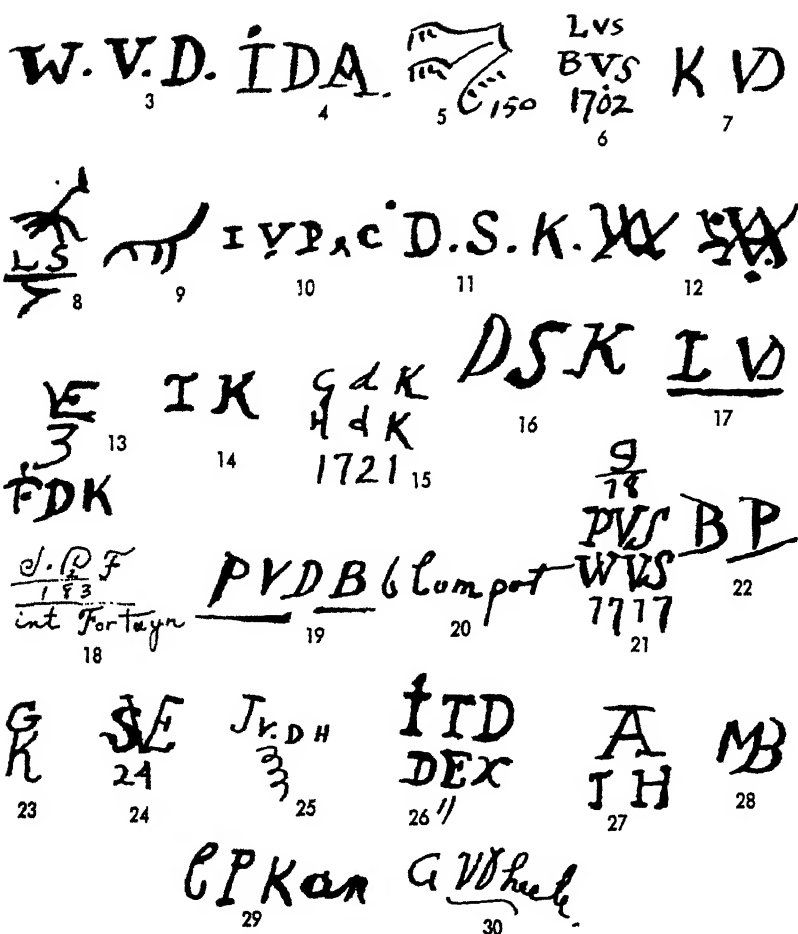 W. V. D.
3
IDA.
4
150
5
LVS
BVS
1702
6
K VD
7
LS
8
9
I V P A C
10
D. S. K.
11
12
VE
3
13
I K
14
G d K
H d K
1721
15
DSK
16
I VD
17
FDK
1 8 3
int Fortuyn
18
PVDB
19
Clompot
20
9
78
PVS
WVS
7717
21
BP
22
G
K
23
SVE
24
24
JV.DH
3
3
3
25
ITD
DEX
26
A
IH
27
MB
28
CPKam
29
G VDheele.
30